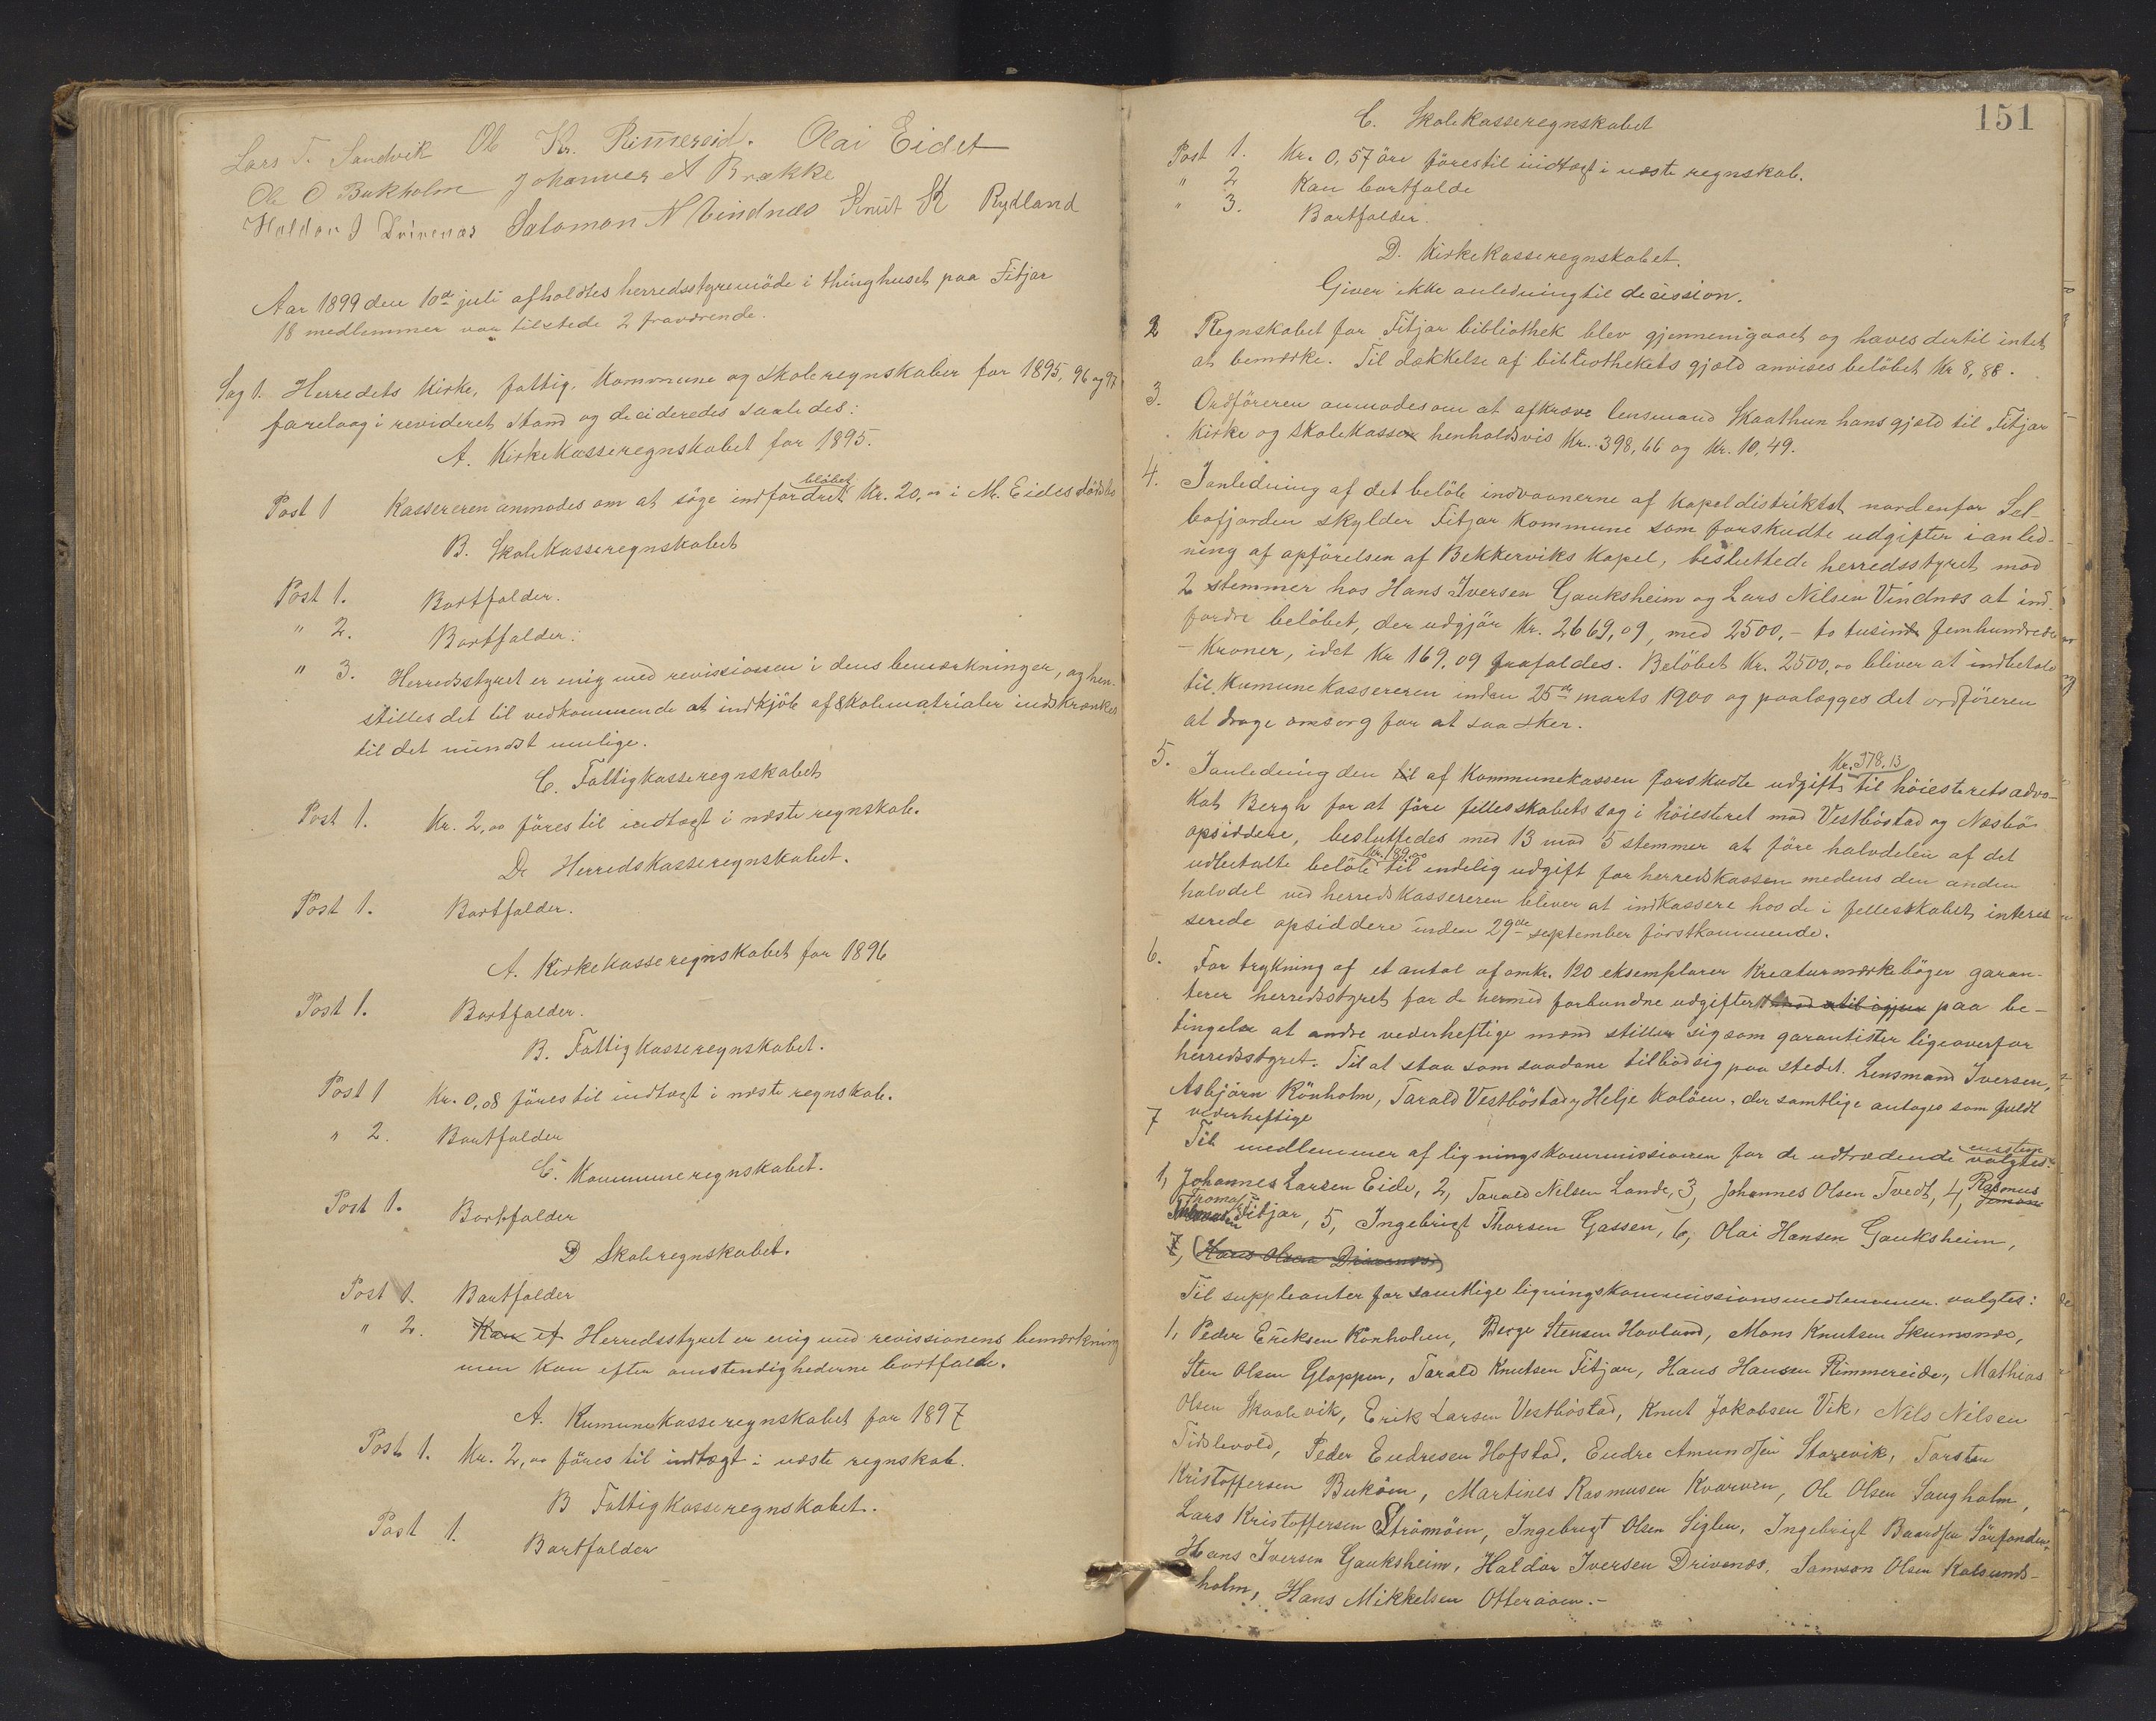 Lars T. Sandvik Ole Kr. Rimmereid. Olai Eidet
Ole O Bukholm Johannes A Brække
Haldor I Drivenæs Salomon N Vindnæs Knut K Rydland
Aar 1899 den 10de juli afholdtes herredsstyremöde i thinghuset paa Fitjar
18 medlemmer var tilstede 2 fraværende.
Sag 1. Herredets Kirke, fattig, Kommune og Skoleregnskaber for 1895, 96 og 97
forelaag i revideret Stand og decideredes saaledes:
A. Kirkekasseregnskabet for 1895.
Post 1 Kassereren anmodes om at söge indfordret belöbet Kr. 20,00 i M. Eides dödsbo
B. Skolekasseregnskabet
Post 1. Bortfalder.
" 2. Bortfalder.
" 3. Herredsstyret er enig med revissionen i dens bemærkninger, og hen-
stilles det til vedkommende at indkjöb af Skolematrialer indskrænkes
til det mindst mulige.
C. Fattigkasseregnskabet
Post 1. Kr. 2,00 föres til indtægt i næste regnskab.
D. Herredskasseregnskabet.
Post 1. Bortfalder.
A. Kirkekasseregnskabet for 1896
Post 1. Bortfalder.
B. Fattigkasseregnskabet.
Post 1 Kr. 0,08 föres til indtægt i næste regnskab.
" 2. Bortfalder
C. Kommuneregnskabet.
Post 1. Bortfalder
D Skoleregnskabet.
Post 1. Bortfalder
" 2. Kan ef Herredsstyret er enig med revissionens bemærkning
men kan efter omstendighederne bortfalde.
A. Kumunekasseregnskabet for 1897
Post 1. Kr. 2,00 föres til indtægt i næste regnskab.
B Fattigkasseregnskabet.
Post 1. Bortfalder
151
C. Skolekasseregnskabet
Post 1. Kr. 0,57 öre föres til indtægt i næste regnskab.
" 2 Kan bortfalde
" 3. Bortfalder.
D. Kirkekasseregnskabet.
Giver ikke anledning til decission.
2 Regnskabet for Fitjar bibliothek blev gjennemigaaet og haves dertil intet
at bemærke. Til dækkelse af bibliothekets gjæld anvises belöbet Kr 8,88.
3. Ordföreren anmodes om at afkræve lensmand Skaathun hans gjæld til Fitjar
Kirke og Skolekasser henholdsvis Kr. 398,66 og Kr. 10,49.
4. I anledning af det belöb indvaanerne af Kapeldistriktet nordenfor Sel-
böfjorden skylder Fitjar Kommune som forskudte udgifter i anled-
ning af opförelsen af Bekkerviks Kapel, besluttede herredsstyret mod
2 stemmer hos Hans Iversen Gauksheim og Lars Nilsen Vindnes at ind-
fordre belöbet, der udgjör Kr. 2669,09, med 2500,- to tusinde femhundrede
- Kroner, idet Kr 169,09 frafaldes. Belöbet Kr. 2500,00 bliver at indbetale
til Kumunekassereren inden 25de marts 1900 og paalægges det ordföreren
at drage omsorg for at saa sker.
5. I anledning den til af Kommunekassen forskudte udgift Kr. 378,13 til höiesteretsadvo-
kat Bergh for at före fellesskabets sag i höiesteret mod Vestböstad og Næsbö
opsiddere, besluttedes med 13 mod 5 stemmer at före halvdelen af det
udbetalte belöb Kr. 189,00 til endelig udgift for herredskassen medens den anden
halvdel ved herredskassereren bliver at indkassere hos de i fellesskabet interes
serede opsiddere inden 29de september förstkommende.
6. For trykning af et antal af omkr. 120 eksemplarer Kreaturmærkebøger garan-
terer herredsstyret for de hermed forbundne udgifter paa be-
tingelse at andre vederheftige mænd stiller sig som garantister ligeoverfor
herredsstyret. Til at staa som saadane tilböd sig paa stedet. Lensmand Iversen,
Asbjörn Rönholm, Tarald Vestböstad, Helje Kalöen, der samtlige antoges som fuldt
vederheftige
7 Til medlemmer af ligningskommissionen for de udtrædende enstem. valgtes:
1, Johannes Larsen Eide, 2, Tarald Nilsen Lande, 3, Johannes Olsen Tvedt, 4, Rasmus
Thomas. Fitjar, 5, Ingebrigt Thorsen Gassen, 6, Olai Hansen Gauksheim,
7, (Hans Olsen Drivenæs)
Til suppleanter for samtlige ligningskommissionsmedlemmer valgtes:
1, Peder Eriksen Rönholmen, Berge Stensen Hovland, Mons Knutsen Skumsnæs,
Sten Olsen Gloppen, Tarald Knutsen Fitjar, Hans Hansen Rimmereide, Mathias
Olsen Skaalevik, Erik Larsen Vestböstad, Knut Jakobsen Vik, Nils Nilsen
Tislevold, Peder Endresen Hofstad, Endre Amundsen Storevik, Torsten
Kristoffersen Buköen, Martines Rasmusen Kvarven, Ole Olsen Saugholm,
Lars Kristoffersen Strömöen, Ingebrigt Olsen Siglen, Ingebrigt Baardsen Sörfonden,
Hans Iversen Gauksheim, Haldor Iversen Drivenæs, Samson Olsen Kalsunds-
holm, Hans Mikkelsen Otteröen.-